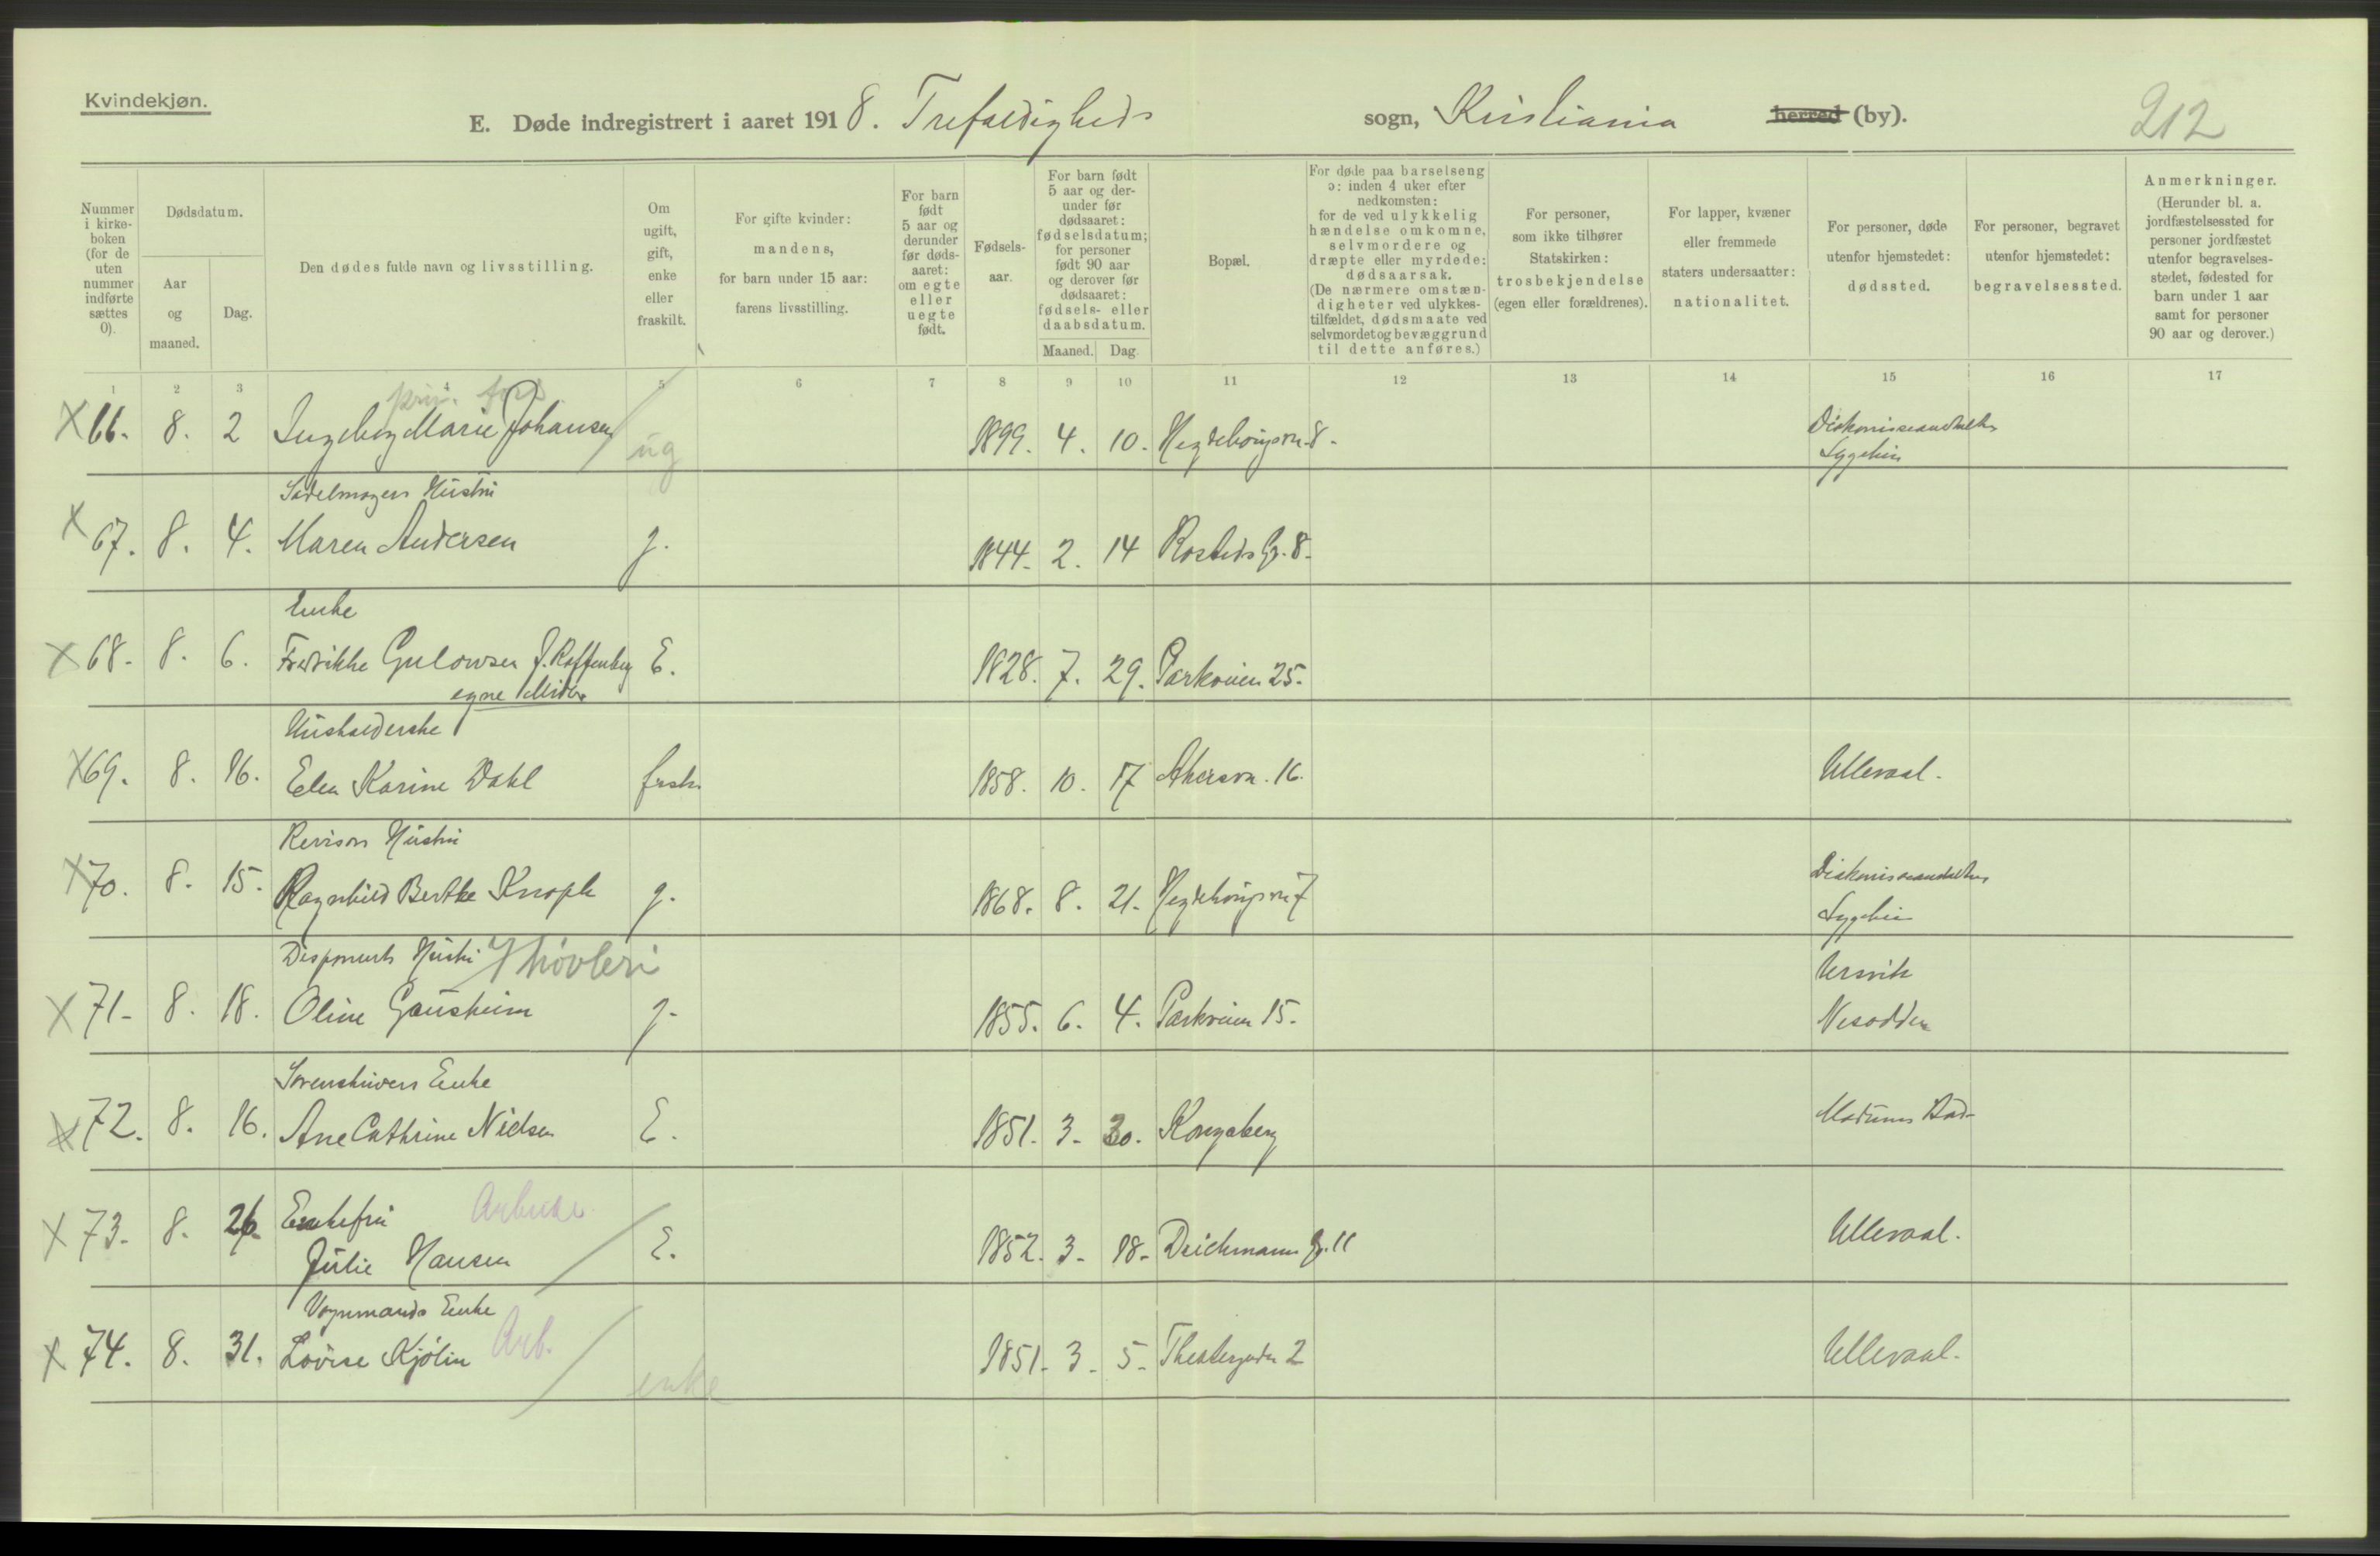 Kvindekjøn.
E. Døde indregistrert i aaret 1918. Trefoldigheds sogn, Kristiania herred (by).
212
Nummer i kirkeboken (for de uten nummer indførte sættes 0).
Dødsdatum.
Aar og maaned.
Dag.
Den dødes fulde navn og livsstilling.
Om ugift, gift, enke eller fraskilt.
For gifte kvinder: mandens, for barn under 15 aar: farens livsstilling.
For barn født 5 aar og derunder før dødsaaret: om egte eller uegte født.
Fødselsaar.
For barn født 5 aar og derunder før dødsaaret: fødselsdatum; for personer født 90 aar og derover før dødsaaret: fødsels- eller daabsdatum.
Maaned. Dag
Bopæl.
For døde paa barselseng ɔ: inden 4 uker efter nedkomsten: for de ved ulykkelig hændelse omkomne, selvmordere og dræpte eller myrdede: dødsaarsak. (De nærmere omstændigheter ved ulykkestilfældet, dødsmaate ved selvmordet og bevæggrund til dette anføres.)
For personer, som ikke tilhører Statskirken: trosbekjendelse (egen eller forældrenes).
For lapper, kvæner eller fremmede staters undersaatter: nationalitet.
For personer, døde utenfor hjemstedet: dødssted.
For personer, begravet utenfor hjemstedet: begravelsessted.
Anmerkninger. (Herunder bl. a. jordfæstelsessted for personer jordfæstet utenfor begravelsesstedet, fødested for barn under 1 aar samt for personer 90 aar og derover.)
1 2 3 4 5 6 7 8 9 10 11 12 13 14 15 16 17
priv. fors.
X 66. 8. 2 Ingeborg Marie Johansen ug 1899. 4. 10. Hegdehaugsvn. 8. Diakonisseanstaltens
Sygehus
Sadelmagers Hustru
X 67. 8. 4. Maren Andersen g. 1844. 2. 14 Rosteds G. 8.
Enke
X 68. 8. 6. Fredrikke Gulowsen f. Roffenberg E. 1828. 7. 29. Parkveien 25.
egne Midler
Husholderske
X 69. 8. 16. Elen Karine Dahl frsk. 1858. 10. 17 Akersvn. 16. Ullevaal.
Revisors Hustru
X 70. 8. 15. Ragnhild Berthe Knoph g. 1868. 8. 21. Hegdehaugsvn 7 Diakonisseanstaltens
Sygehus
Disponents Hustru Høvleri
X 71. 8. 18. Oline Gausheim g. 1855. 6. 4. Parkveien 15. Ursvik
Nesodden
Sorenskrivers Enke
X 72. 8. 16. Ane Cathrine Nielsen E. 1851. 3. 30. Kongsberg Modums Bad.
X 73. 8. 26. Enkefru Arbeider
Julie Hansen E. 1852. 3. 18. Deichmans G. 11 Ullevaal.
Vognmands Enke
X 74. 8. 31. Lovise Kjølin Arb. enke 1851. 3. 5. Theatergaden 2 Ullevaal.